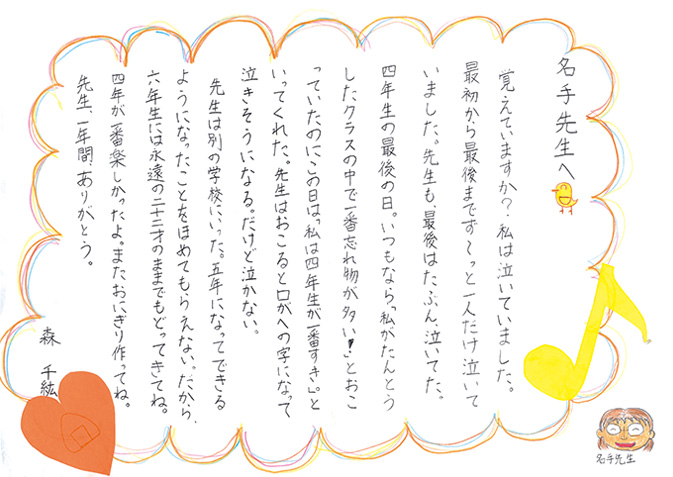 名手先生へ
覚えていますか？私は泣いていました。
最初から最後まで、ず〜っと一人だけ泣いて
いました。先生も、最後はたぶん、泣いてた。
四年生の最後の日。いつもなら「私がたんとう
したクラスの中で一番忘れ物が多い！」とおこ
っていたのにこの日は「私は四年生が一番すき。」と
いってくれた。先生はおこると口がへの字になって
泣きそうになる。だけど泣かない。
先生は別の学校にいった。五年になってできる
ようになったことをほめてもらえない。だから、
六年生には永遠の二十二才のままでもどってきてね。
四年が一番楽しかったよ。またおにぎり作ってね。
先生、一年間、ありがとう。
森 千紘
名手先生